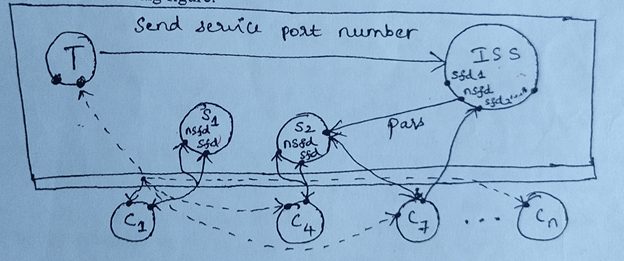 Send service port number
T
ISS
sfd1
nsfd
sfd2....
S1
nsfd
sfd
S2
nsfd
sfd
pass
C1
C4
C7
...
Cn